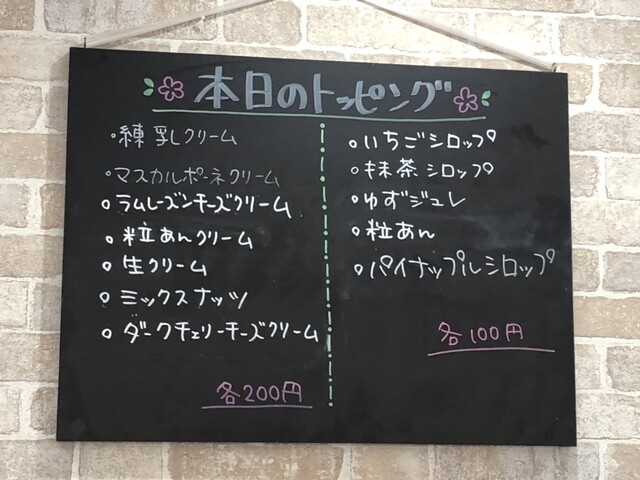 本日のトッピング
○練乳クリーム
○マスカルポーネクリーム
○ラムレーズンチーズクリーム
○粒あんクリーム
○生クリーム
○ミックスナッツ
○ダークチェリーチーズクリーム
各200円
○いちごシロップ
○抹茶シロップ
○ゆずジュレ
○粒あん
○パイナップルシロップ
各100円